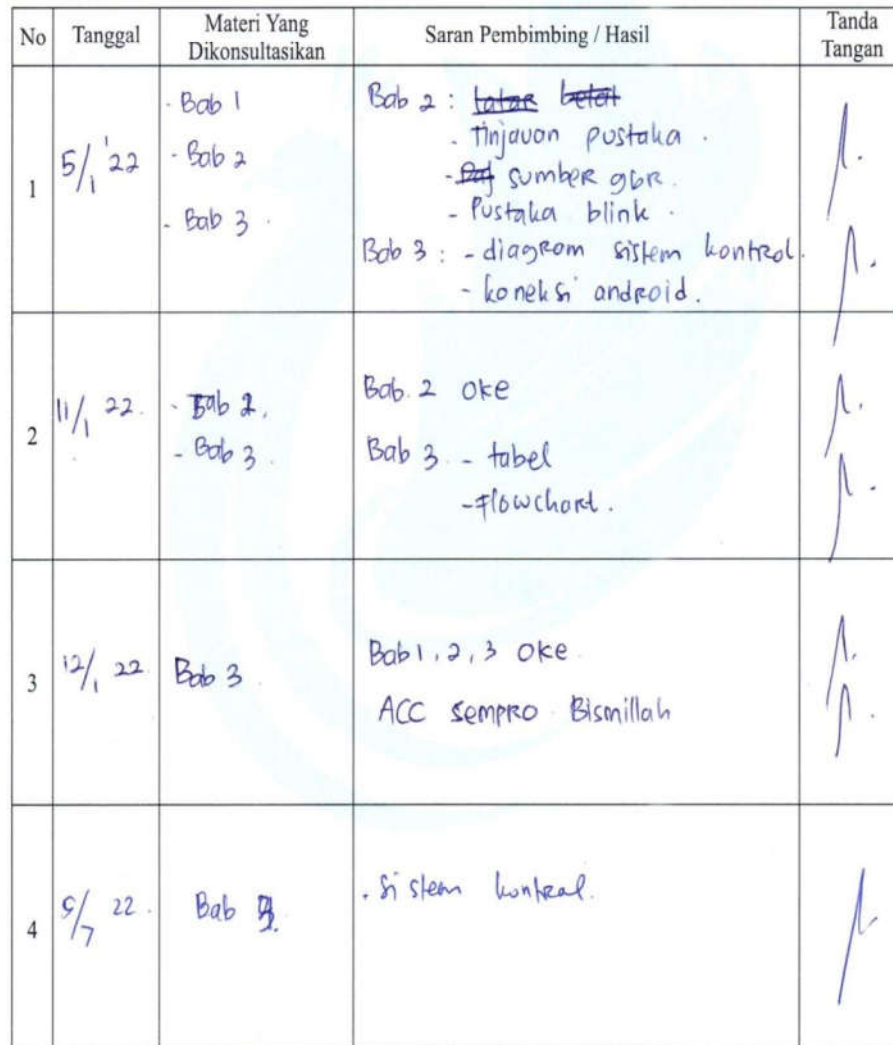 No Tanggal Materi Yang Dikonsultasikan Saran Pembimbing / Hasil Tanda Tangan
1 5/1 '22
- Bab 1
- Bab 2
- Bab 3.
Bab 2 : latar belak
- Tinjauan pustaka.
- sumber gbr.
- Pustaka blink.
Bab 3 : - diagram sistem kontrol.
- koneksi android.
2 11/1 22.
- Bab 2.
- Bab 3.
Bab. 2 oke
Bab 3 - tabel
- Flowchart.
3 12/1 22
Bab 3
Bab 1, 2, 3 oke
ACC sempro Bismillah
4 5/7 22.
Bab
. Sistem kontrol.